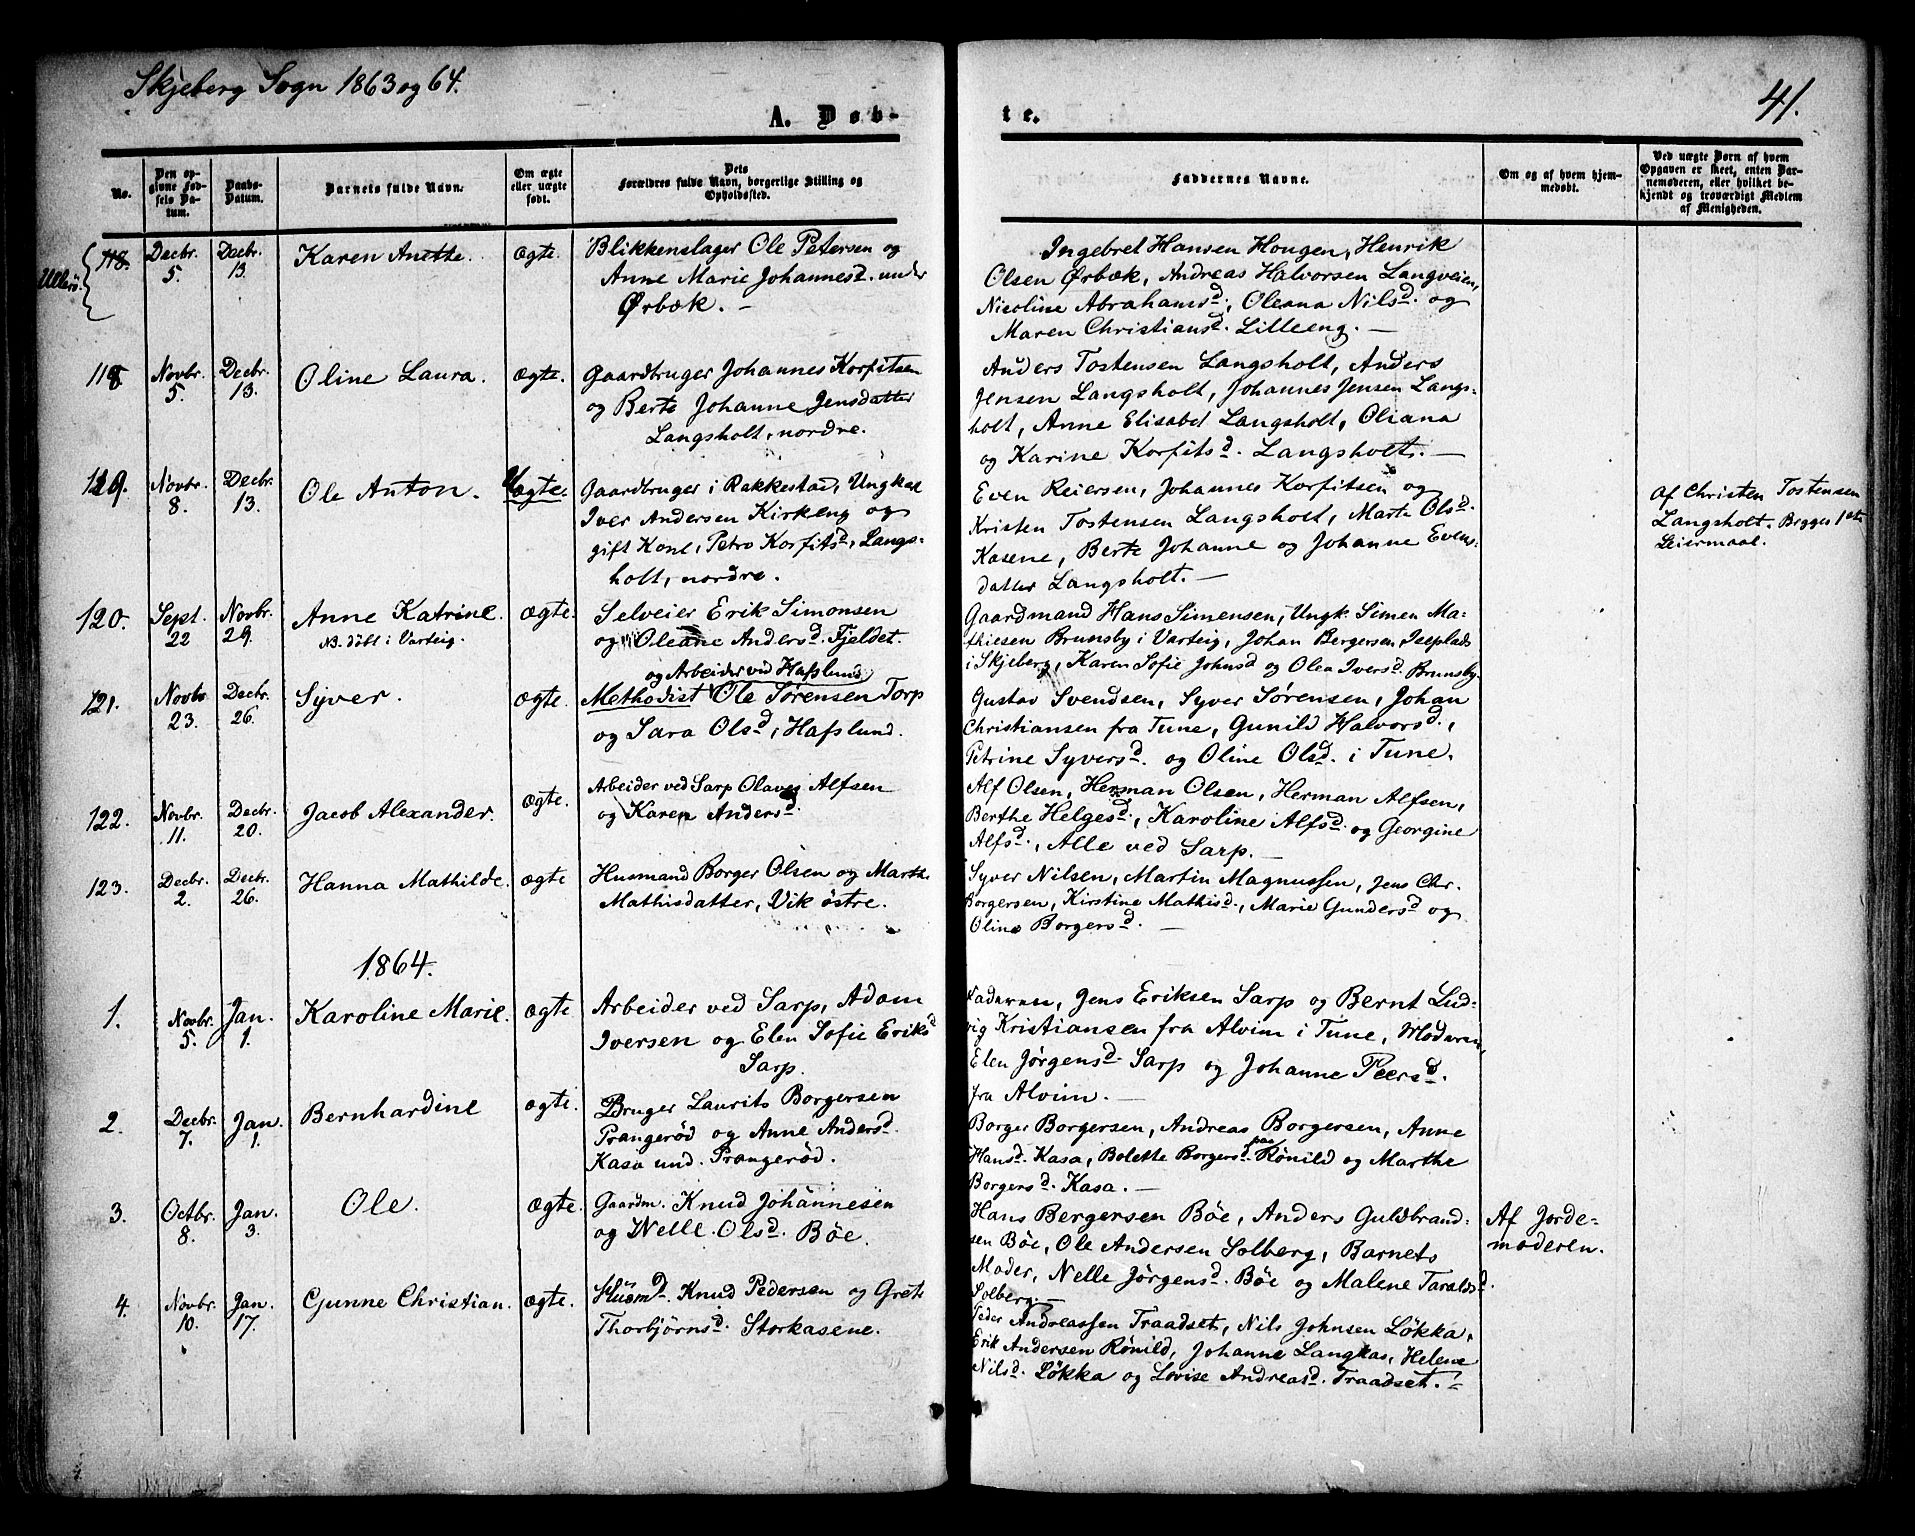 Skjeberg Sogn 1863 og 64.
41.
A. Døb-
te.
No.
Den op-
givne Fød-
sels Da-
tum.
Daabs-
Datum.
Barnets fulde Navn.
Om ægte
eller uægte
født.
Dets
Forældres fulde Navn, borgerlige Stilling og
Opholdssted.
Faddernes Navne.
Om og af hvem hjem-
medøbt.
Ved uægte Børn af hvem
Opgaven er skeet, enten Bar-
nemoderen, eller hvilket be-
kjendt og troværdigt Medlem
af Menigheden.
Ullerö.
118.
Decbr.
5.
Decbr.
13.
Karen Anette.
Ægte.
Blikkenslager Ole Petersen og
Anne Marie Johannesd. under
Ørbæk. –
Ingebret Hansen Hougen, Henrik
Olsen Ørbæk, Andreas Halvorsen Langveien,
Nicoline Abrahamsd., Oleana Nilsd. og
Maren Christiansd. Lilleeng. –
118.
Novbr.
5.
Decbr.
13.
Oline Laura.
Ægte.
Gaardbruger Johannes Korfitsen
og Berte Johanne Jensdatter
Langsholt, nordre.
Anders Tostensen Langsholt, Anders
Jensen Langsholt, Johannes Jensen Langs-
holt, Anne Elisabet Langsholt, Oliana
og Karine Korfitsd. Langsholt. –
119.
Novbr.
8.
Decbr.
13.
Ole Anton.
Uægte.
Gaardbruger i Rakkestad, Ungkal
Iver Andersen Kirkeng og
gift Kone, Petro Korfitsd., Langs-
holt, nordre.
Even Reiersen, Johannes Korfitsen og
Kristen Tostensen Langsholt, Marte Olsd.
Kasene, Berte Johanne og Johanne Evens-
datter Langsholt. –
Af Christen Tostensen
Langsholt. Begges 1ste
Leiermaal.
120.
Sept.
22
Novbr.
29.
Anne Katrine.
NB. døbt i Varteig.
Ægte.
Selveier Erik Simonsen
og Oleane Andersd. Fjeldet.
Gaardmand Hans Simensen, Ungk. Simen Ma-
thiesen Brunsby i Varteig, Johan Bergersen, Iseplads
i Skjeberg, Karen Sofie Johnsd og Olea Iversd. Brunsby.
121.
Novbr
23.
Decbr.
26.
Syver.
Ægte.
og Arbeider ved Hafslund
Methodist Ole Sørensen Torp
og Sara Olsd, Hafslund.
Gustav Svendsen, Syver Sørensen, Johan
Christiansen fra Tune, Gunild Halvorsd.,
Petrine Syversd. og Oline Olsd. i Tune.
122.
Novbr.
11.
Decbr.
20.
Jacob Alexander.
Ægte.
Arbeider ved Sarp Olaves Alfsen
og Karen Andersd.
Alf Olsen, Herman Olsen, Herman Alfsen,
Berthe Helgesd., Karoline Alfsd. og Georgine
Alfsd., Alle ved Sarp. –
123.
Decbr.
2.
Decbr.
26.
Hanna Mathilde.
Ægte
Husmand Borger Olsen og Marthe
Mathisdatter, Vik østre.
Syver Nilsen, Martin Magnussen, Jens Chr.
Borgersen, Kirstine Mathisd., Marie Gundersd og
Oline Borgersd. –
1864.
1.
Novbr.
5.
Jan.
1.
Karoline Marie.
Ægte
Arbeider ved Sarp, Adam
Iversen og Elen Sofie Eriksd
Sarp.
Faderen, Jens Eriksen Sarp og Bernt Lud-
vig Kristiansen fra Alvim i Tune, Moderen,
Elen Jørgensd. Sarp og Johanne Peersd.
fra Alvim. –
2.
Decbr.
7.
Jan.
1.
Bernhardine
Ægte.
Bruger Laurits Borgersen
Prangerød og Anne Andersd.
Kasa und. Prangerød.
Borger Borgersen, Andreas Borgersen, Anne
Hansd. Kasa, Bolette Borgersd. paa Rønild og Marthe
Borgersd. Kasa. –
3.
Octbr.
8.
Jan.
3.
Ole.
Ægte.
Gaardm. Knud Johannesen
og Nelle Olsd. Bøe.
Hans Bergersen Bøe, Anders Guldbrand-
sen Bøe, Ole Andersen Solberg, Barnets
Moder, Nelle Jörgensd. Bøe og Malene Taraldsd.
Solberg. –
Af Jorde-
moderen.
4.
Novbr.
10.
Jan.
17.
Gunne Christian.
Ægte.
Husmd. Knud Pedersen og Grete
Thorbjörnsd. Storkasene.
Peder Andreassen Traadset, Nils Johnsen Løkka,
Erik Andersen Rønild, Johanne Langkas, Helene
Nilsd. Løkka og Lovise Andreasd. Traadset. –